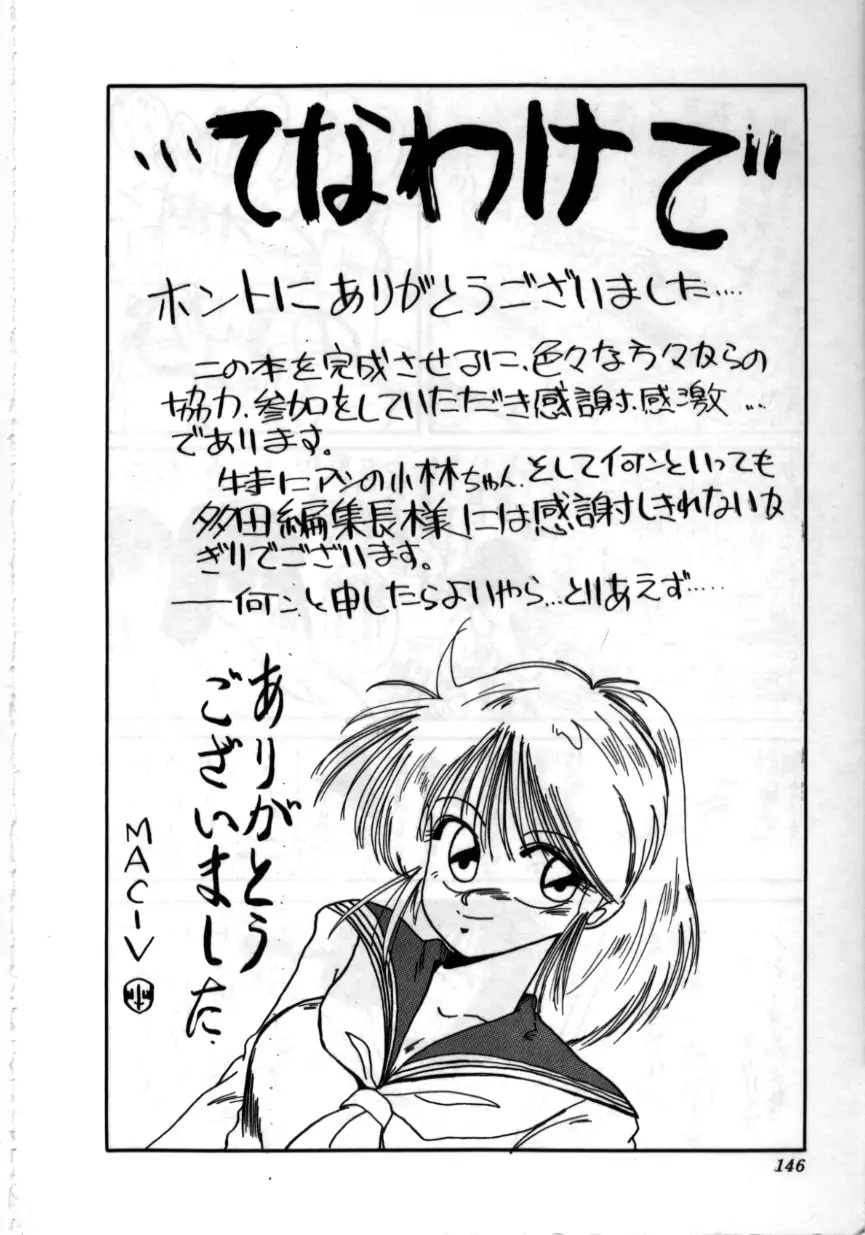 …てなわけで〃
ホントにありがとうございました‥‥
この本を完成させるに、色々な方々からの
協力、参加をしていただき感謝、感激…
であります。
特にアシの小林ちゃん、そして何ンといっても
多田編集長様には感謝しきれないか
ぎりでございます。
――何ンと申したらよいやら…とりあえず‥‥‥
ありがとう
ございました.
MAC-V
146